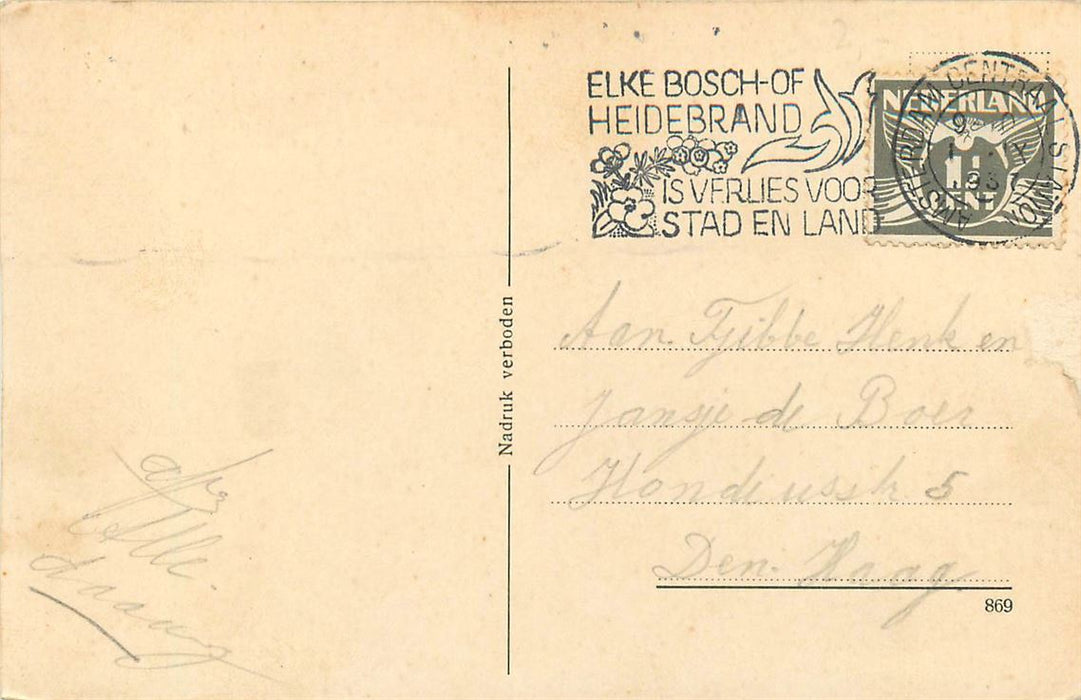 ELKE BOSCH-OF
HEIDEBRAND
IS VERLIES VOOR
STAD EN LAND
NEDERLAND
CENT
AMSTERDAM CENTRAAL STATION
Nadruk verboden
Aan Tjibbe Henk en
Jansje de Boer
Hondiusstr 5
Den Haag
869